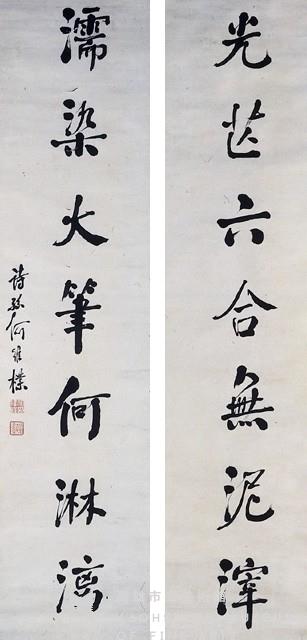 光芒六合無泥滓
濡染大筆何淋漓
詩孫何維樸